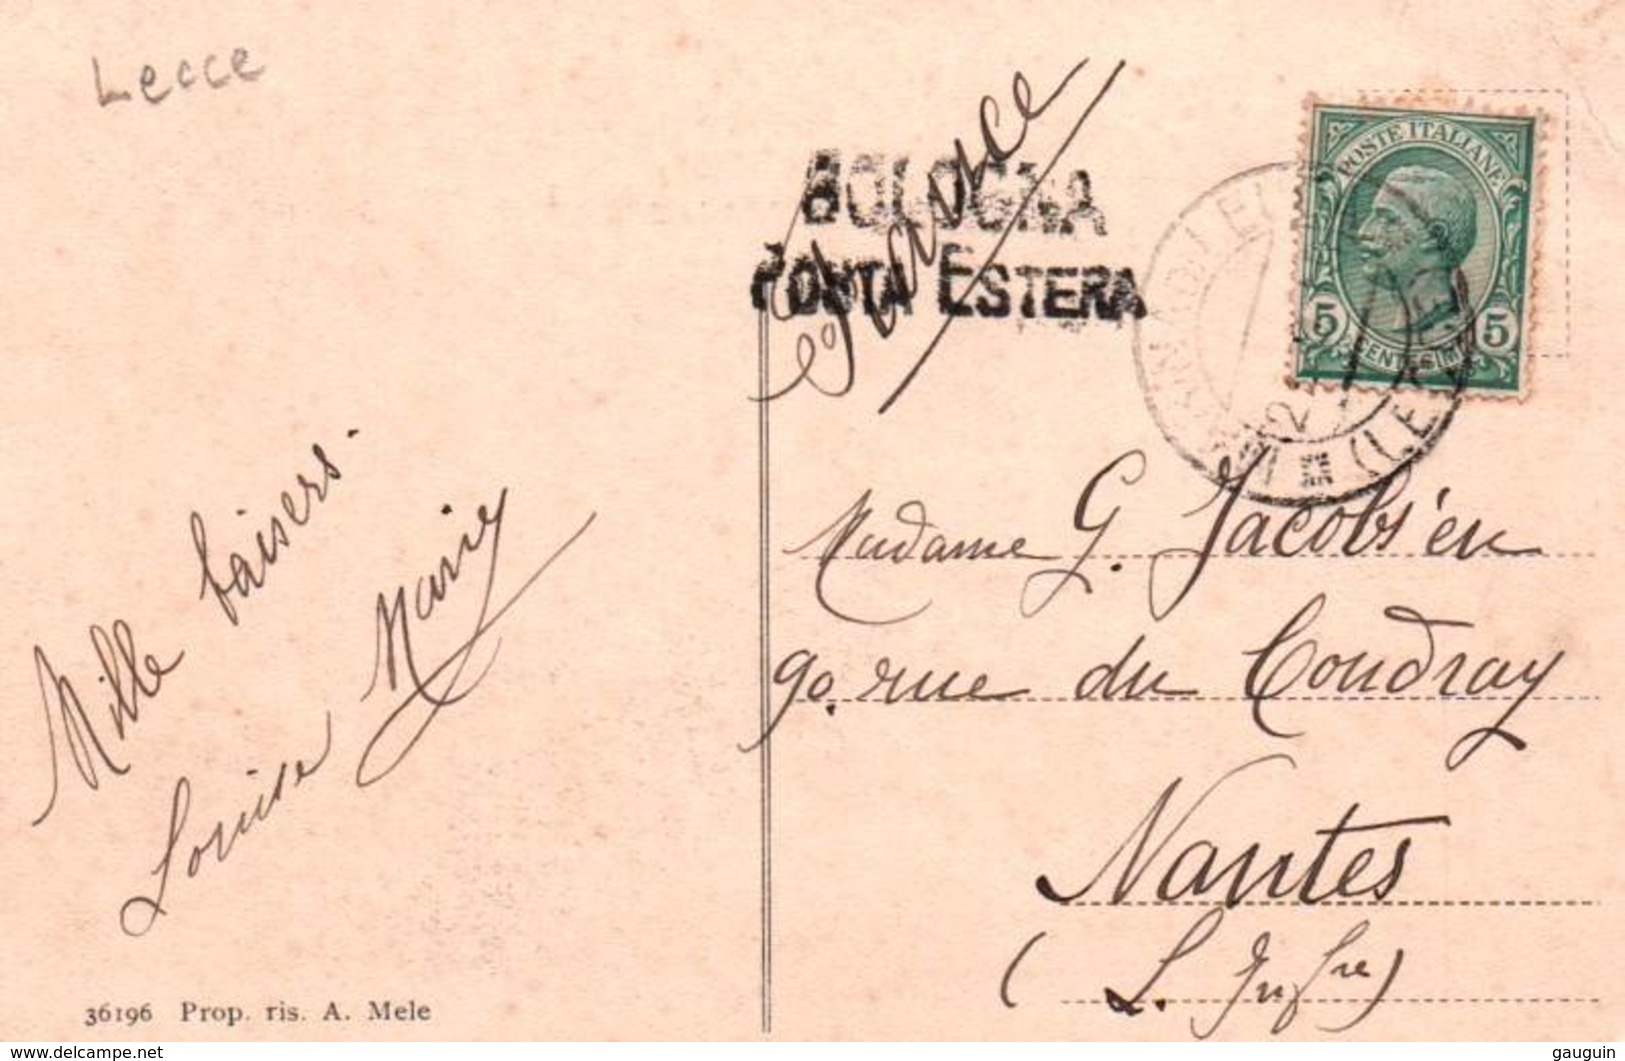 Lecce
France
BOLOGNA
POSTA ESTERA
POSTE ITALIANE
5 CENTESIMI 5
Mille baisers.
Louise Marie
Madame G. Jacobs'en
90. rue du Coudray
Nantes
(L. Infre)
36196 Prop. ris. A. Mele
delcampe.net
gauguin